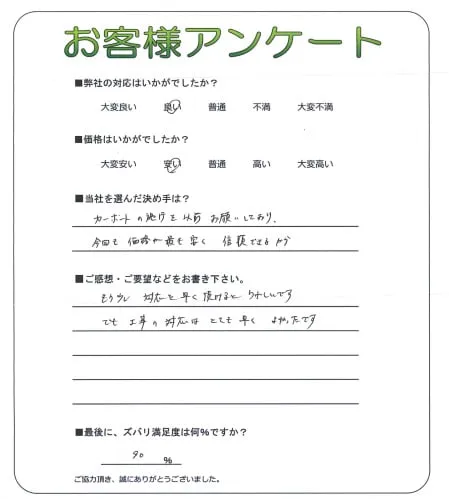 お客様アンケート
■弊社の対応はいかがでしたか?
大変良い 良い 普通 不満 大変不満
■価格はいかがでしたか?
大変安い 安い 普通 高い 大変高い
■当社を選んだ決め手は?
カーポートの施行を以前お願いしており、
今回も価格が最も安く信頼できるから
■ご感想・ご要望などをお書き下さい。
もう少し対応を早く頂けるとうれしいです
でも工事の対応はとても早くよかったです
■最後に、ズバリ満足度は何%ですか?
90 %
ご協力頂き、誠にありがとうございました。